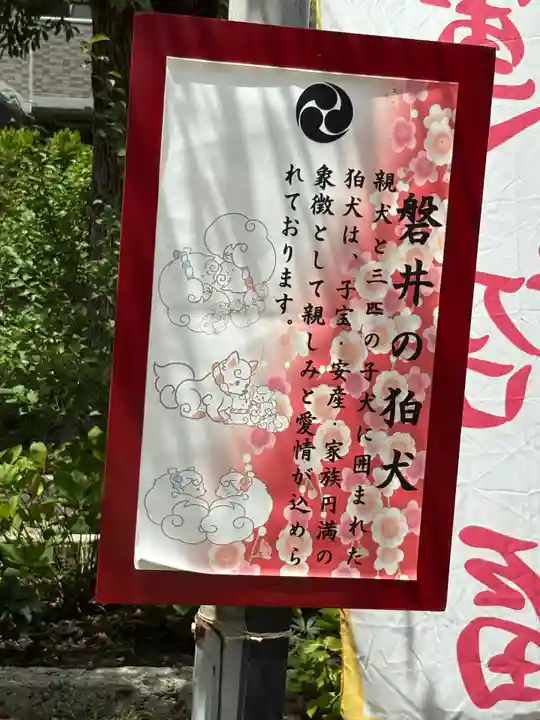 磐井の狛犬
親犬と三匹の子犬に囲まれた
狛犬は、子宝・安産・家族円満の
象徴として親しみと愛情が込めら
れております。